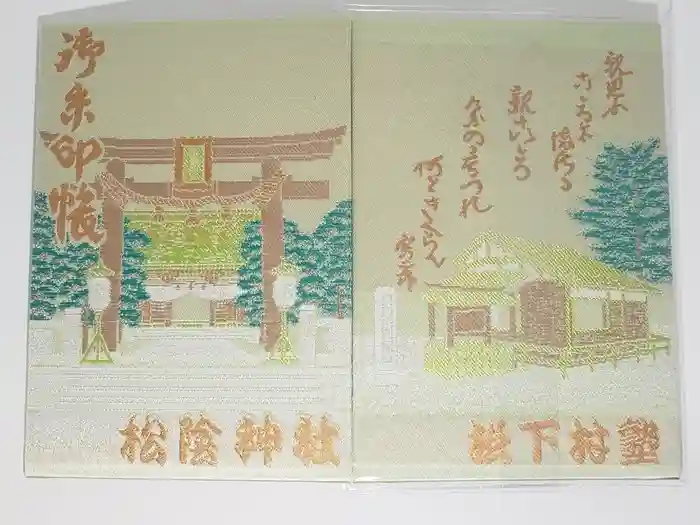 御朱印帳
松陰神社
親思ふ
こゝろに
まさる
親こゝろ
けふの音つれ
何ときくらん
松下村塾